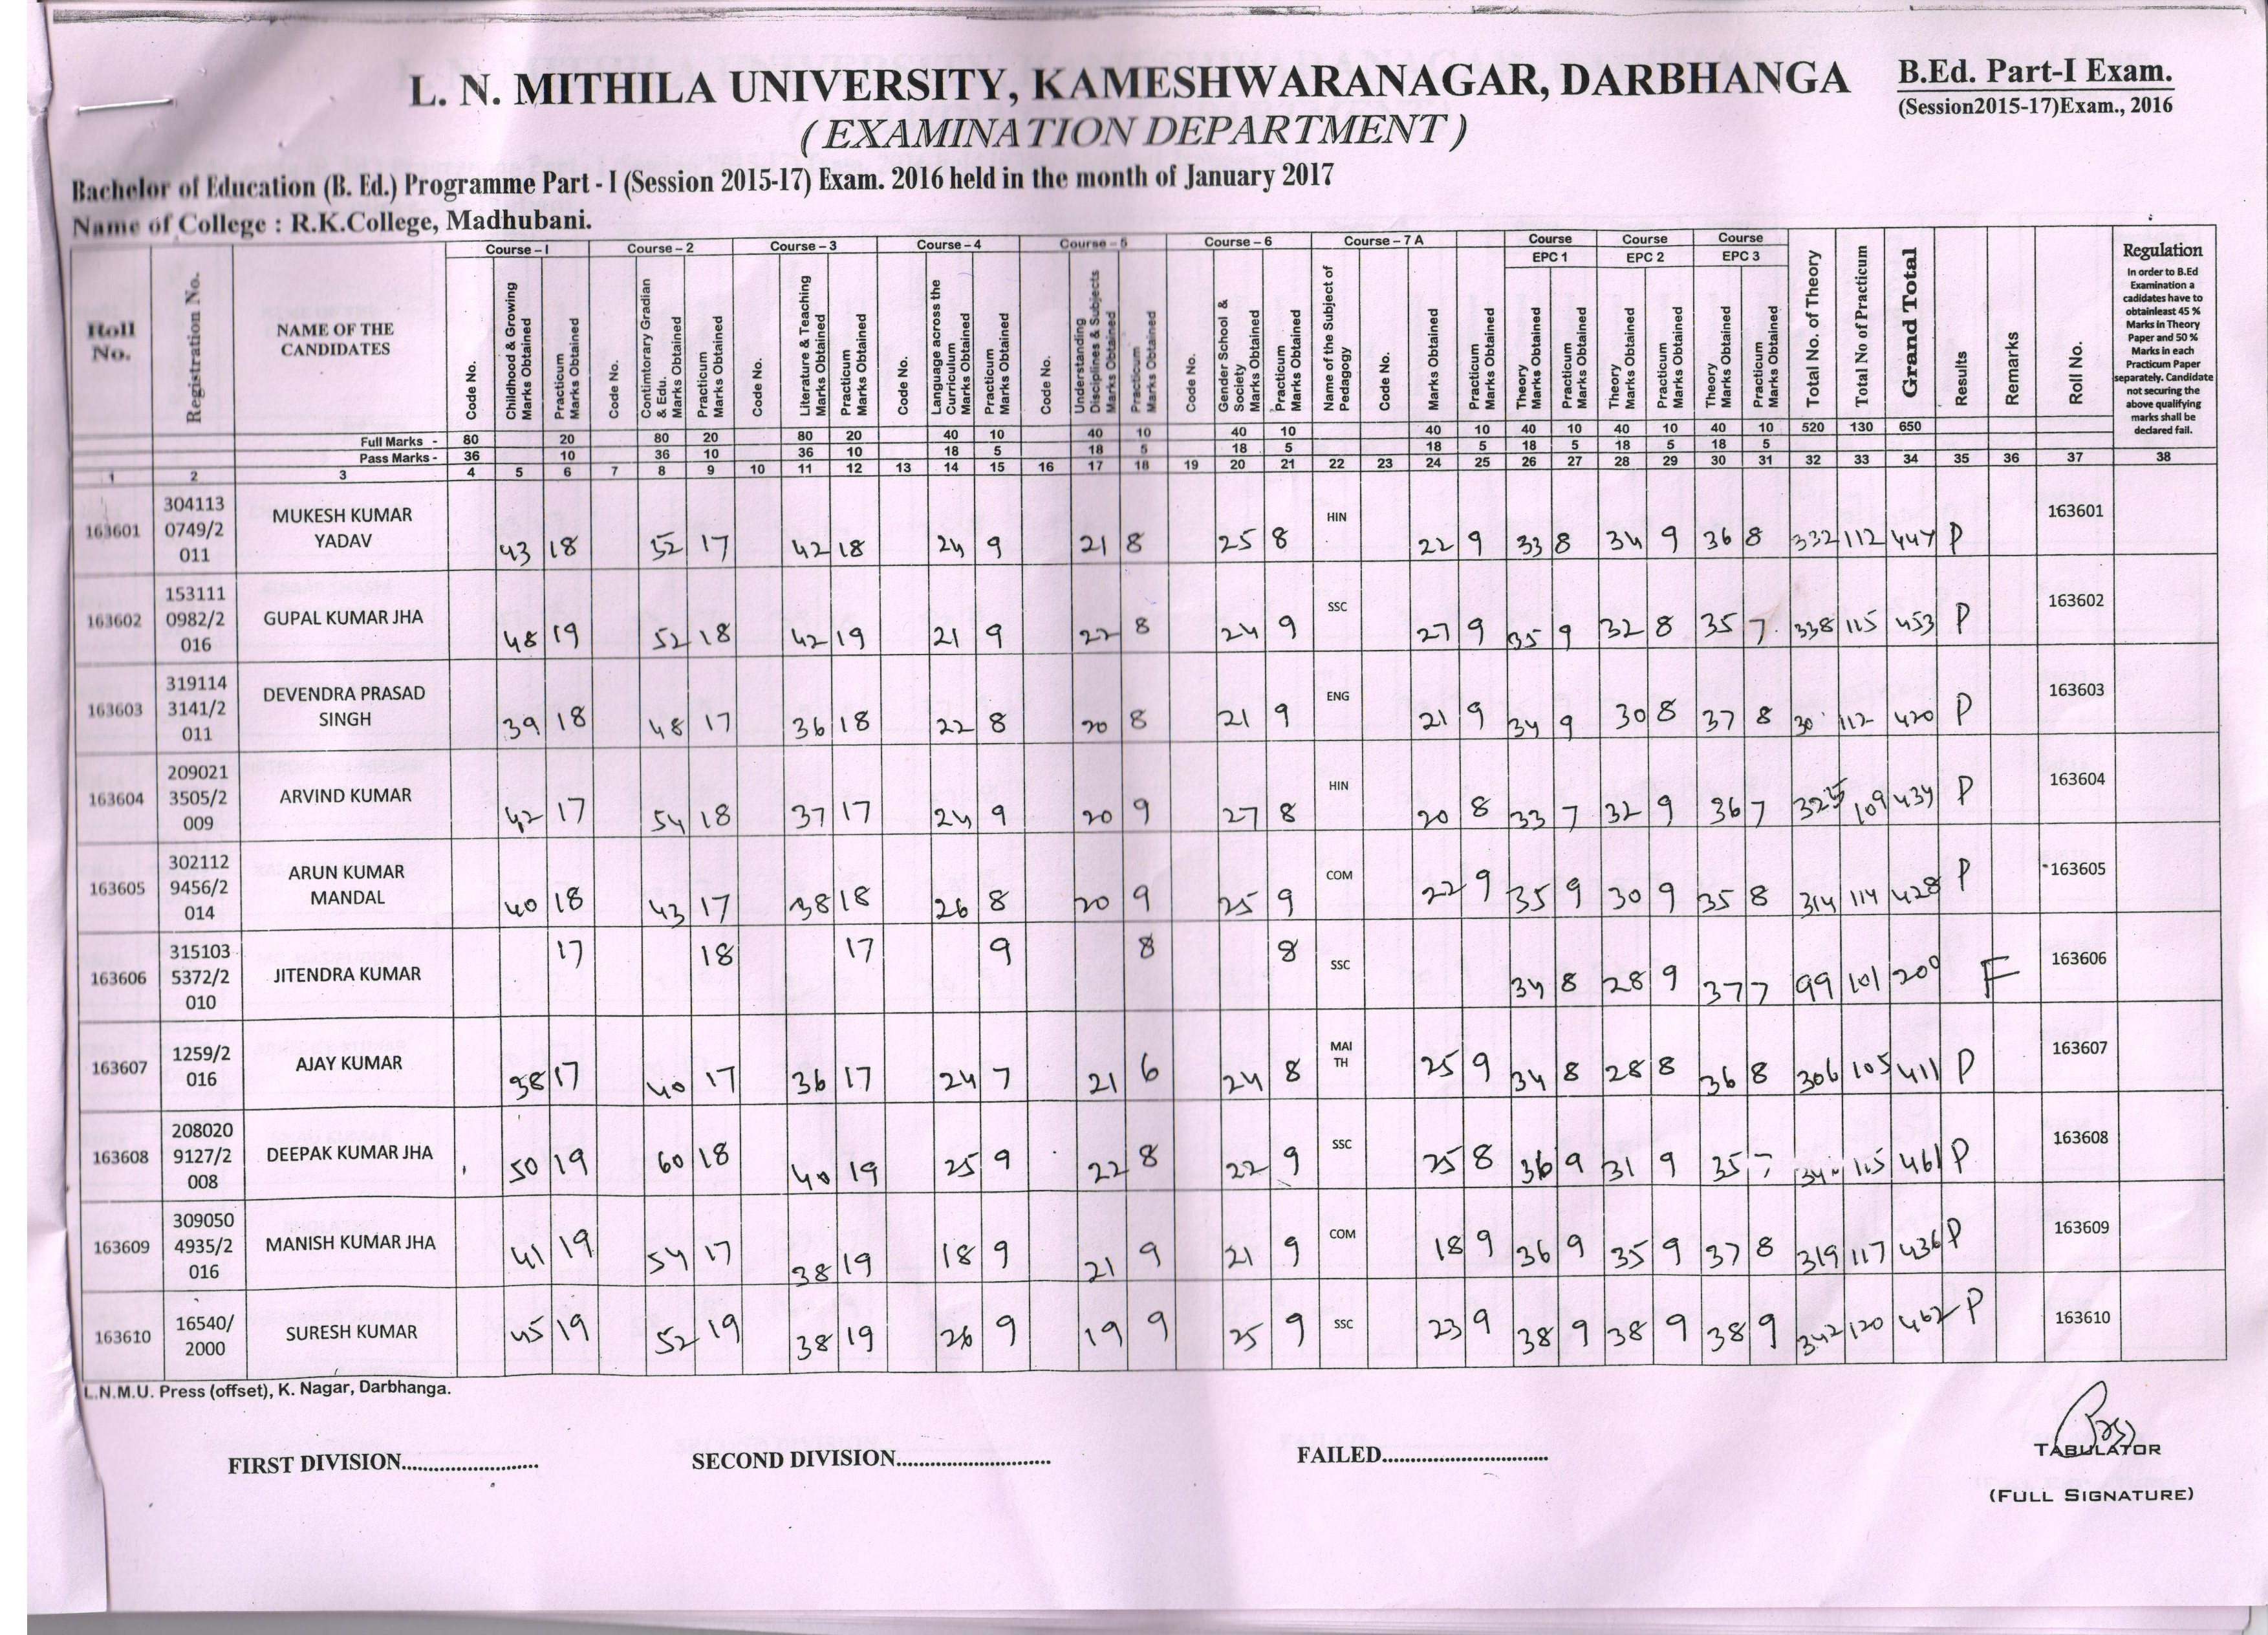 L. N. MITHILA UNIVERSITY, KAMESHWARANAGAR, DARBHANGA
B.Ed. Part-I Exam.
(Session2015-17)Exam., 2016
(EXAMINATION DEPARTMENT)
Bachelor of Education (B. Ed.) Programme Part - I (Session 2015-17) Exam. 2016 held in the month of January 2017
Name of College : R.K.College, Madhubani.
Course – I Course – 2 Course – 3 Course – 4 Course – 5 Course – 6 Course – 7 A Course EPC 1 Course EPC 2 Course EPC 3
Roll No. Registration No. NAME OF THE CANDIDATES Code No. Childhood & Growing Marks Obtained Practicum Marks Obtained Code No. Contimtorary Gradian & Edu. Marks Obtained Practicum Marks Obtained Code No. Literature & Teaching Marks Obtained Practicum Marks Obtained Code No. Language across the Curriculum Marks Obtained Practicum Marks Obtained Code No. Understanding Disciplines & Subjects Marks Obtained Practicum Marks Obtained Code No. Gender School & Society Marks Obtained Practicum Marks Obtained Name of the Subject of Pedagogy Code No. Marks Obtained Practicum Marks Obtained Theory Marks Obtained Practicum Marks Obtained Theory Marks Obtained Practicum Marks Obtained Theory Marks Obtained Practicum Marks Obtained Total No. of Theory Total No of Practicum Grand Total Results Remarks Roll No.
Regulation
In order to B.Ed
Examination a
cadidates have to
obtainleast 45 %
Marks in Theory
Paper and 50 %
Marks in each
Practicum Paper
separately. Candidate
not securing the
above qualifying
marks shall be
declared fail.
Full Marks - 80 20 80 20 80 20 40 10 40 10 40 10 40 10 40 10 40 10 40 10 520 130 650
Pass Marks - 36 10 36 10 36 10 18 5 18 5 18 5 18 5 18 5 18 5 18 5
1 2 3 4 5 6 7 8 9 10 11 12 13 14 15 16 17 18 19 20 21 22 23 24 25 26 27 28 29 30 31 32 33 34 35 36 37 38
163601 304113 0749/2 011 MUKESH KUMAR YADAV 43 18 52 17 42 18 24 9 21 8 25 8 HIN 22 9 33 8 34 9 36 8 332 112 444 P 163601
163602 153111 0982/2 016 GUPAL KUMAR JHA 48 19 52 18 42 19 21 9 22 8 24 9 SSC 27 9 35 9 32 8 35 7 338 115 453 P 163602
163603 319114 3141/2 011 DEVENDRA PRASAD SINGH 39 18 48 17 36 18 22 8 20 8 21 9 ENG 21 9 34 9 30 8 37 8 112 420 P 163603
163604 209021 3505/2 009 ARVIND KUMAR 42 17 54 18 37 17 24 9 20 9 27 8 HIN 20 8 33 7 32 9 36 7 325 109 434 P 163604
163605 302112 9456/2 014 ARUN KUMAR MANDAL 40 18 43 17 38 18 26 8 20 9 25 9 COM 22 9 35 9 30 9 35 8 314 114 428 P 163605
163606 315103 5372/2 010 JITENDRA KUMAR 17 18 17 9 8 8 SSC 34 8 28 9 37 7 99 101 200 F 163606
163607 1259/2 016 AJAY KUMAR 38 17 40 17 36 17 24 7 21 6 24 8 MAI TH 25 9 34 8 28 8 36 8 306 105 411 P 163607
163608 208020 9127/2 008 DEEPAK KUMAR JHA 50 19 60 18 40 19 25 9 22 8 22 9 SSC 25 8 36 9 31 9 35 7 115 461 P 163608
163609 309050 4935/2 016 MANISH KUMAR JHA 41 19 54 17 38 19 18 9 21 9 21 9 COM 18 9 36 9 35 9 37 8 319 117 436 P 163609
163610 16540/ 2000 SURESH KUMAR 45 19 52 19 38 19 26 9 19 9 25 9 SSC 23 9 38 9 38 9 38 9 342 120 462 P 163610
L.N.M.U. Press (offset), K. Nagar, Darbhanga.
FIRST DIVISION.......................... SECOND DIVISION............................. FAILED...............................
TABULATOR
(FULL SIGNATURE)